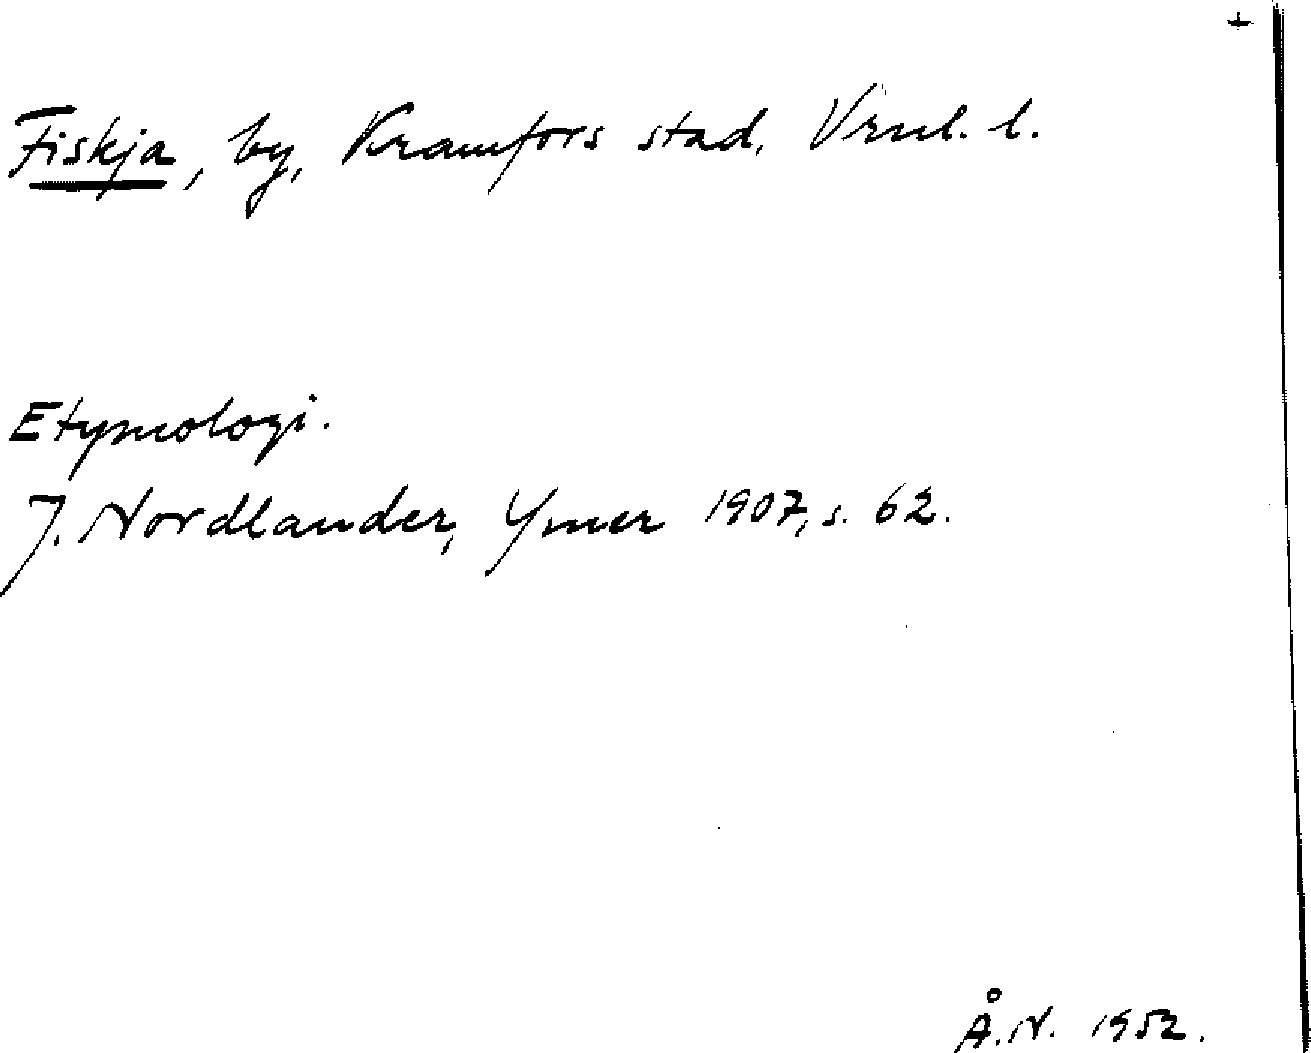 +
Fiskja, by, Kramfors stad, Vrnl. l.
Etymologi.
J. Nordlander, Ymer 1907, s. 62.
Å. N. 1952.